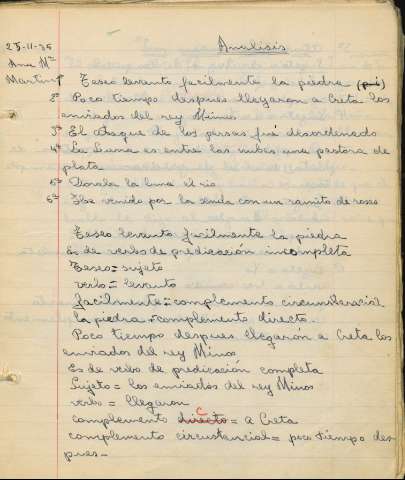 25-11-35
Analisis
Ana Mª
Martin 1º Teseo levanto facilmente la piedra
2º Poco tiempo despues llegaron a Creta los
enviados del rey Minos
3º El ataque de los persas fué desordenado
4ª La Luna es entre las nubes una pastora de
plata
5ª Dorala la luna el rio
6ª venido por la senda con un ramito de rosas
Teseo levanto facilmente la piedra
Es de verbo de predicación incompleta
Teseo = sujeto
verbo = levanto
facilmente = complemento circunstancial
la piedra = complemento directo.
Poco tiempo despues llegarón a Creta los
enviados del rey Minos
Es de verbo de predicación completa
Sujeto = los enviados del rey Minos
verbo = llegaron
complemento directo C = a Creta
complemento circustancial = poco tiempo des
pues-